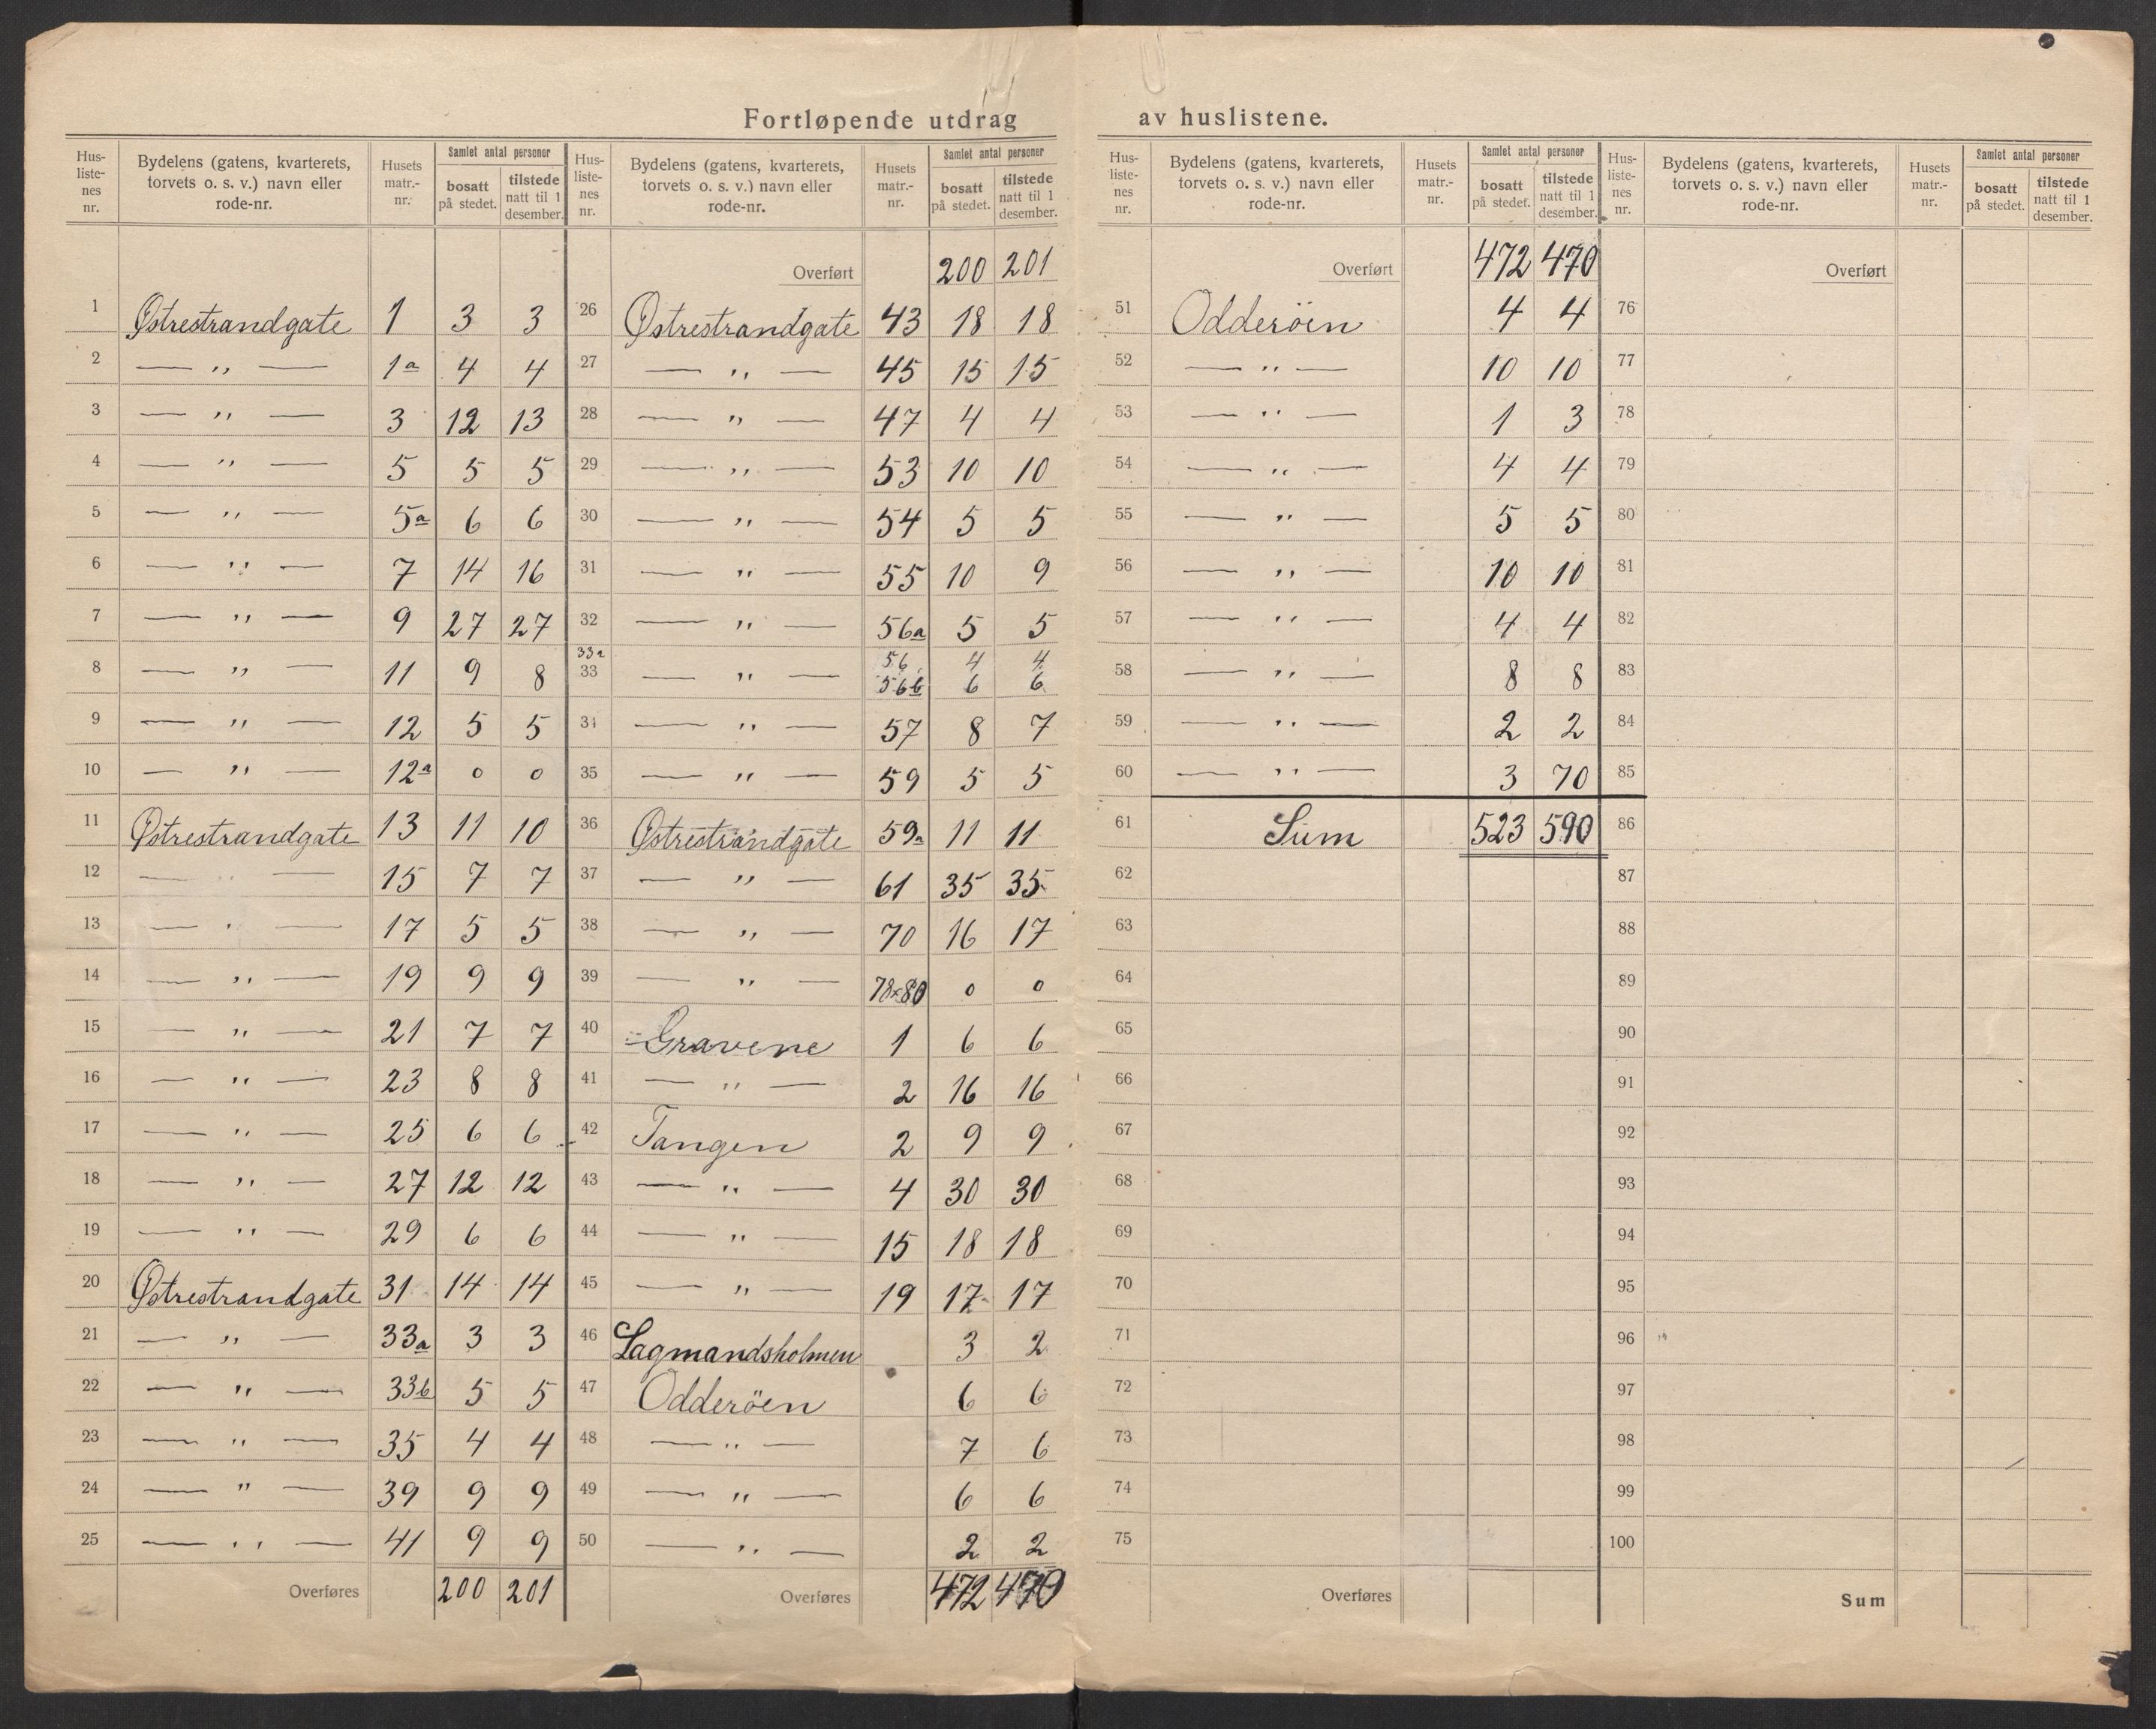 Fortløpende utdrag av huslistene.
Hus-listenes nr. | Bydelens (gatens, kvarterets, torvets o. s. v.) navn eller rode-nr. | Husets matr.-nr. | Samlet antal personer bosatt på stedet. | tilstede natt til 1 desember.
1 Østrestrandgate 1 3 3
2 — „ — 1a 4 4
3 — „ — 3 12 13
4 — „ — 5 5 5
5 — „ — 5a 6 6
6 — „ — 7 14 16
7 — „ — 9 27 27
8 — „ — 11 9 8
9 — „ — 12 5 5
10 — „ — 12a 0 0
11 Østrestrandgate 13 11 10
12 — „ — 15 7 7
13 — „ — 17 5 5
14 — „ — 19 9 9
15 — „ — 21 7 7
16 — „ — 23 8 8
17 — „ — 25 6 6
18 — „ — 27 12 12
19 — „ — 29 6 6
20 Østrestrandgate 31 14 14
21 — „ — 33a 3 3
22 — „ — 33b 5 5
23 — „ — 35 4 4
24 — „ — 39 9 9
25 — „ — 41 9 9
Overføres 200 201
Hus-listenes nr. | Bydelens (gatens, kvarterets, torvets o. s. v.) navn eller rode-nr. | Husets matr.-nr. | Samlet antal personer bosatt på stedet. | tilstede natt til 1 desember.
Overført 200 201
26 Østrestrandgate 43 18 18
27 — „ — 45 15 15
28 — „ — 47 4 4
29 — „ — 53 10 10
30 — „ — 54 5 5
31 — „ — 55 10 9
32 — „ — 56a 5 5
33a 56 4 4
33 — „ — 56b 6 6
34 — „ — 57 8 7
35 — „ — 59 5 5
36 Østrestrandgate 59a 11 11
37 — „ — 61 35 35
38 — „ — 70 16 17
39 — „ — 78×80 0 0
40 Gravene 1 6 6
41 — „ — 2 16 16
42 Tangen 2 9 9
43 — „ — 4 30 30
44 — „ — 15 18 18
45 — „ — 19 17 17
46 Lagmandsholmen 3 2
47 Odderöen 6 6
48 — „ — 7 6
49 — „ — 6 6
50 — „ — 2 2
Overføres 472 470
Hus-listenes nr. | Bydelens (gatens, kvarterets, torvets o. s. v.) navn eller rode-nr. | Husets matr.-nr. | Samlet antal personer bosatt på stedet. | tilstede natt til 1 desember.
Overført 472 470
51 Odderöen 4 4
52 — „ — 10 10
53 — „ — 1 3
54 — „ — 4 4
55 — „ — 5 5
56 — „ — 10 10
57 — „ — 4 4
58 — „ — 8 8
59 — „ — 2 2
60 — „ — 3 70
61 Sum 523 590
62
63
64
65
66
67
68
69
70
71
72
73
74
75
Overføres
Hus-listenes nr. | Bydelens (gatens, kvarterets, torvets o. s. v.) navn eller rode-nr. | Husets matr.-nr. | Samlet antal personer bosatt på stedet. | tilstede natt til 1 desember.
Overført
76
77
78
79
80
81
82
83
84
85
86
87
88
89
90
91
92
93
94
95
96
97
98
99
100
Sum